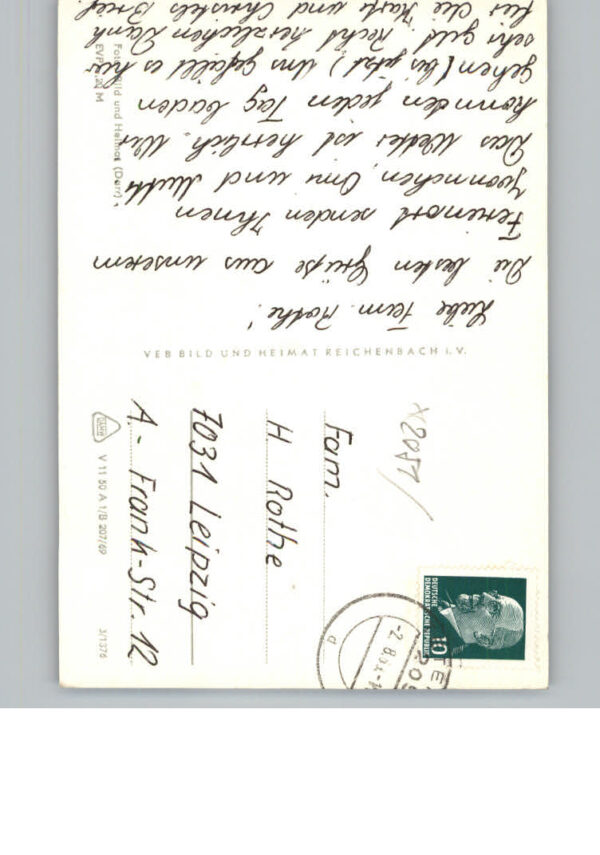 Liebe Fam. Rothe!
Die besten Grüße aus unserem
Ferienort senden Ihnen
Omi und Mutti
Das Wetter ist herrlich. Wir
konnden jeden Tag baden
gehen (bis jetzt). Uns gefällt es hier
sehr gut. Recht herzlichen Dank
für die Karte und Christels Brief.
Foto: Bild und Heimat (Darr)
EVP 0,20 M
VEB BILD UND HEIMAT REICHENBACH i. V.
Fam.
H. Rothe
7031 Leipzig
A.-Frank-Str. 12
V 11 50 A 1/B 207/69
3/1376
DEUTSCHE
DEMOKRATISCHE REPUBLIK
10